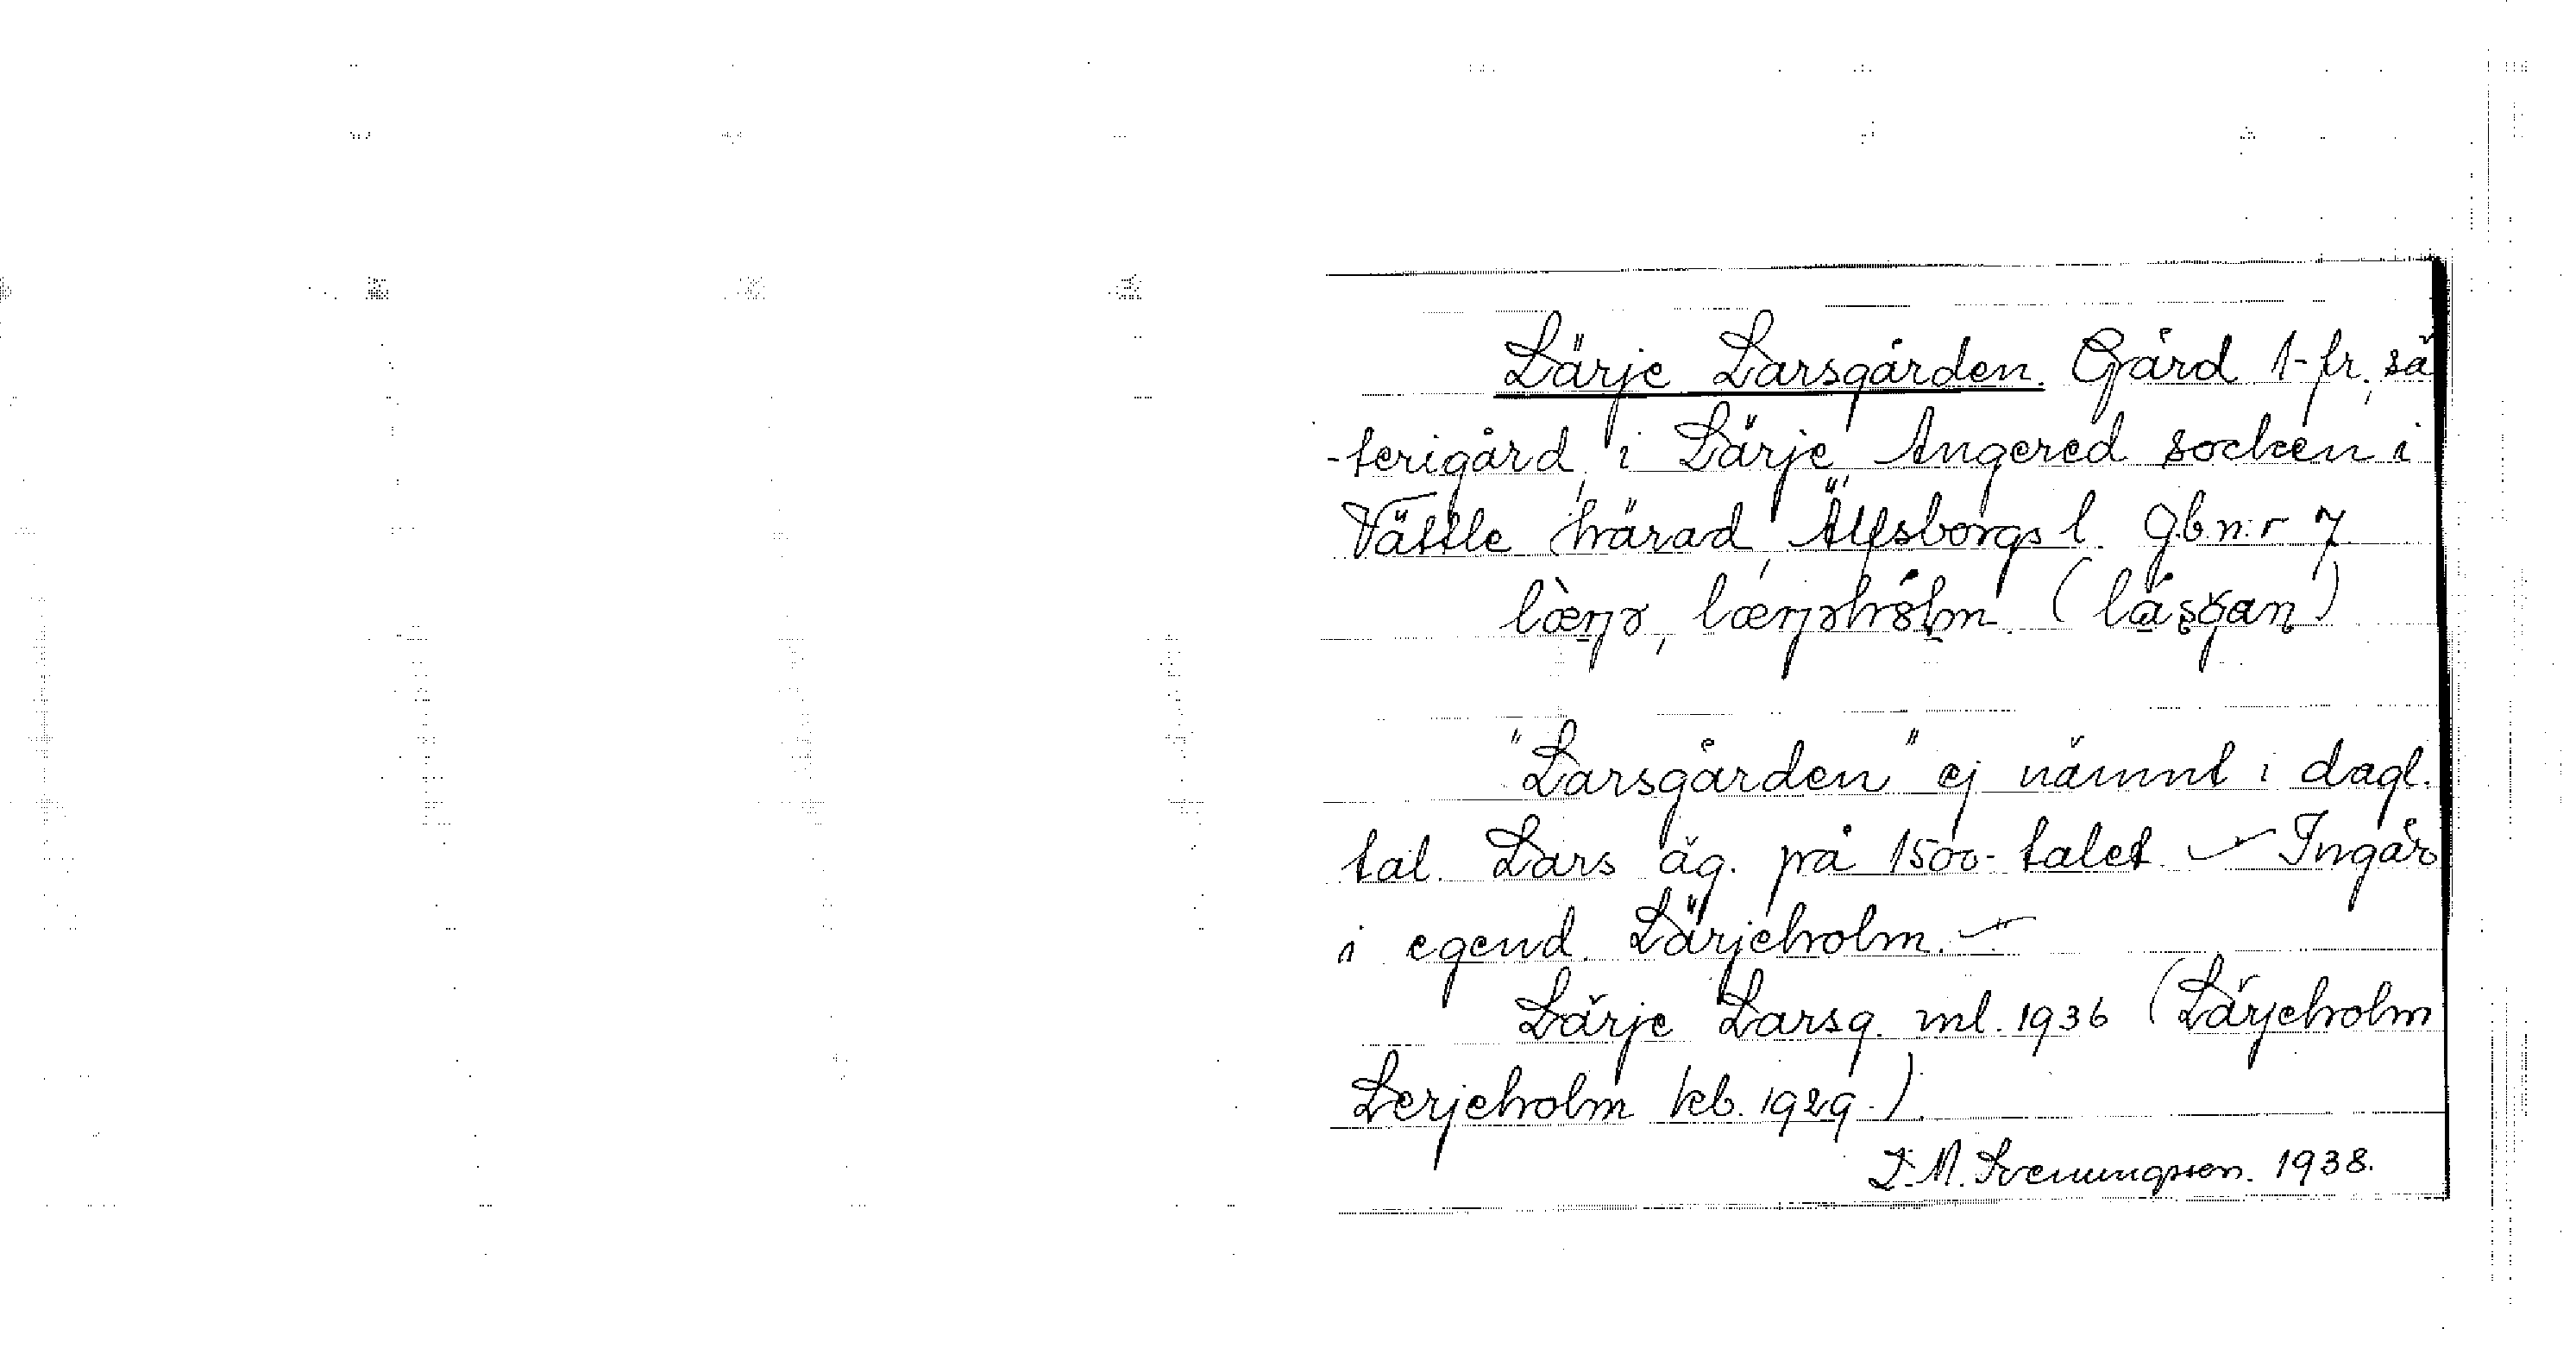 Lärje Larsgården. Gård 1-fr, sä
-terigård, i Lärje, Angered socken i
Vättle härad, Älfsborgs l. g.b n:r 7
lærjə, lærjəhólm. (lásgan)
"Larsgården" ej nämnt i dagl.
tal. Lars äg. på 1500-talet. Ingår
i egend. Lärjeholm.
Lärje Larsg. ml. 1936 (Lärjeholm
Lerjeholm kb. 1929.)
1938.